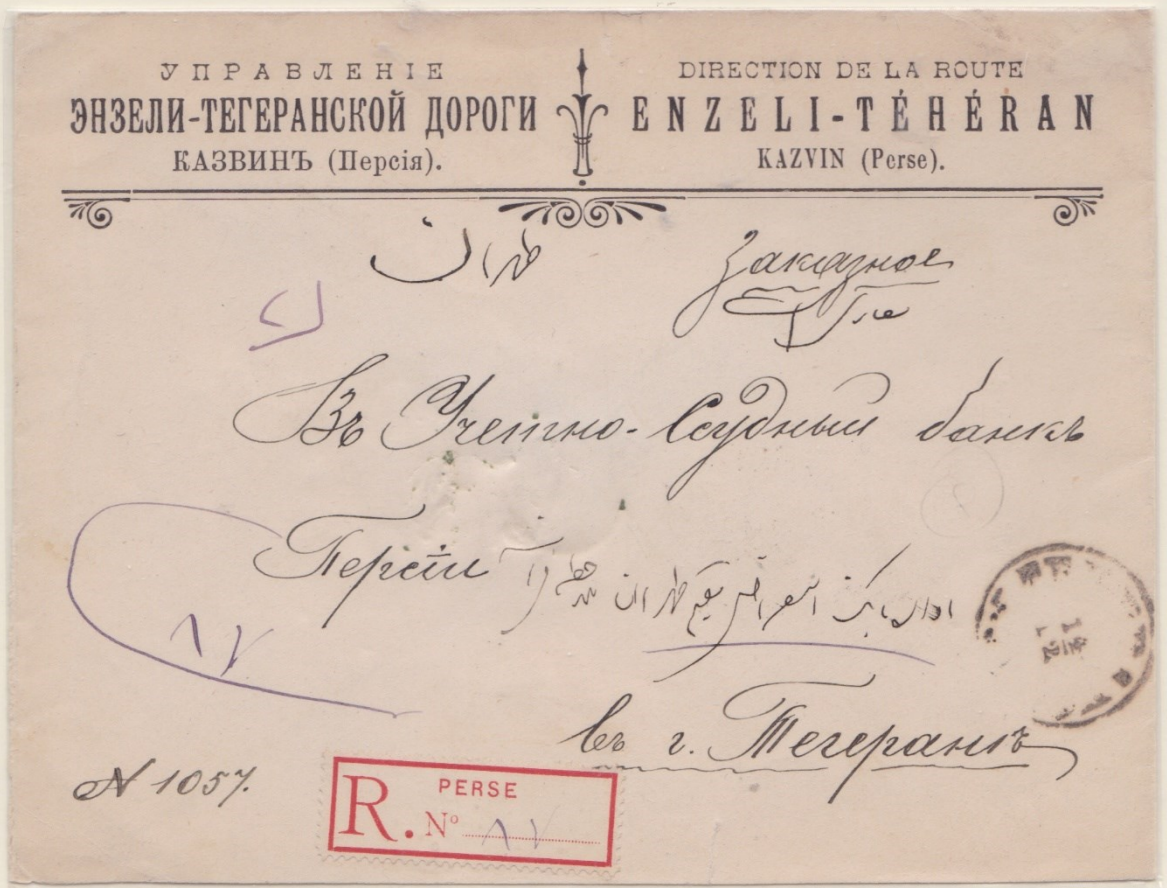 УПРАВЛЕНІЕ
ЭНЗЕЛИ-ТЕГЕРАНСКОЙ ДОРОГИ
КАЗВИНЪ (Персія).
DIRECTION DE LA ROUTE
ENZELI-TÉHÉRAN
KAZVIN (Perse).
طهران
Заказное
Въ Учетно-Ссудный банкъ
Персіи
طهران
۸۷
въ г. Тегеранѣ
N 1057.
R. PERSE
Nº ۸۷